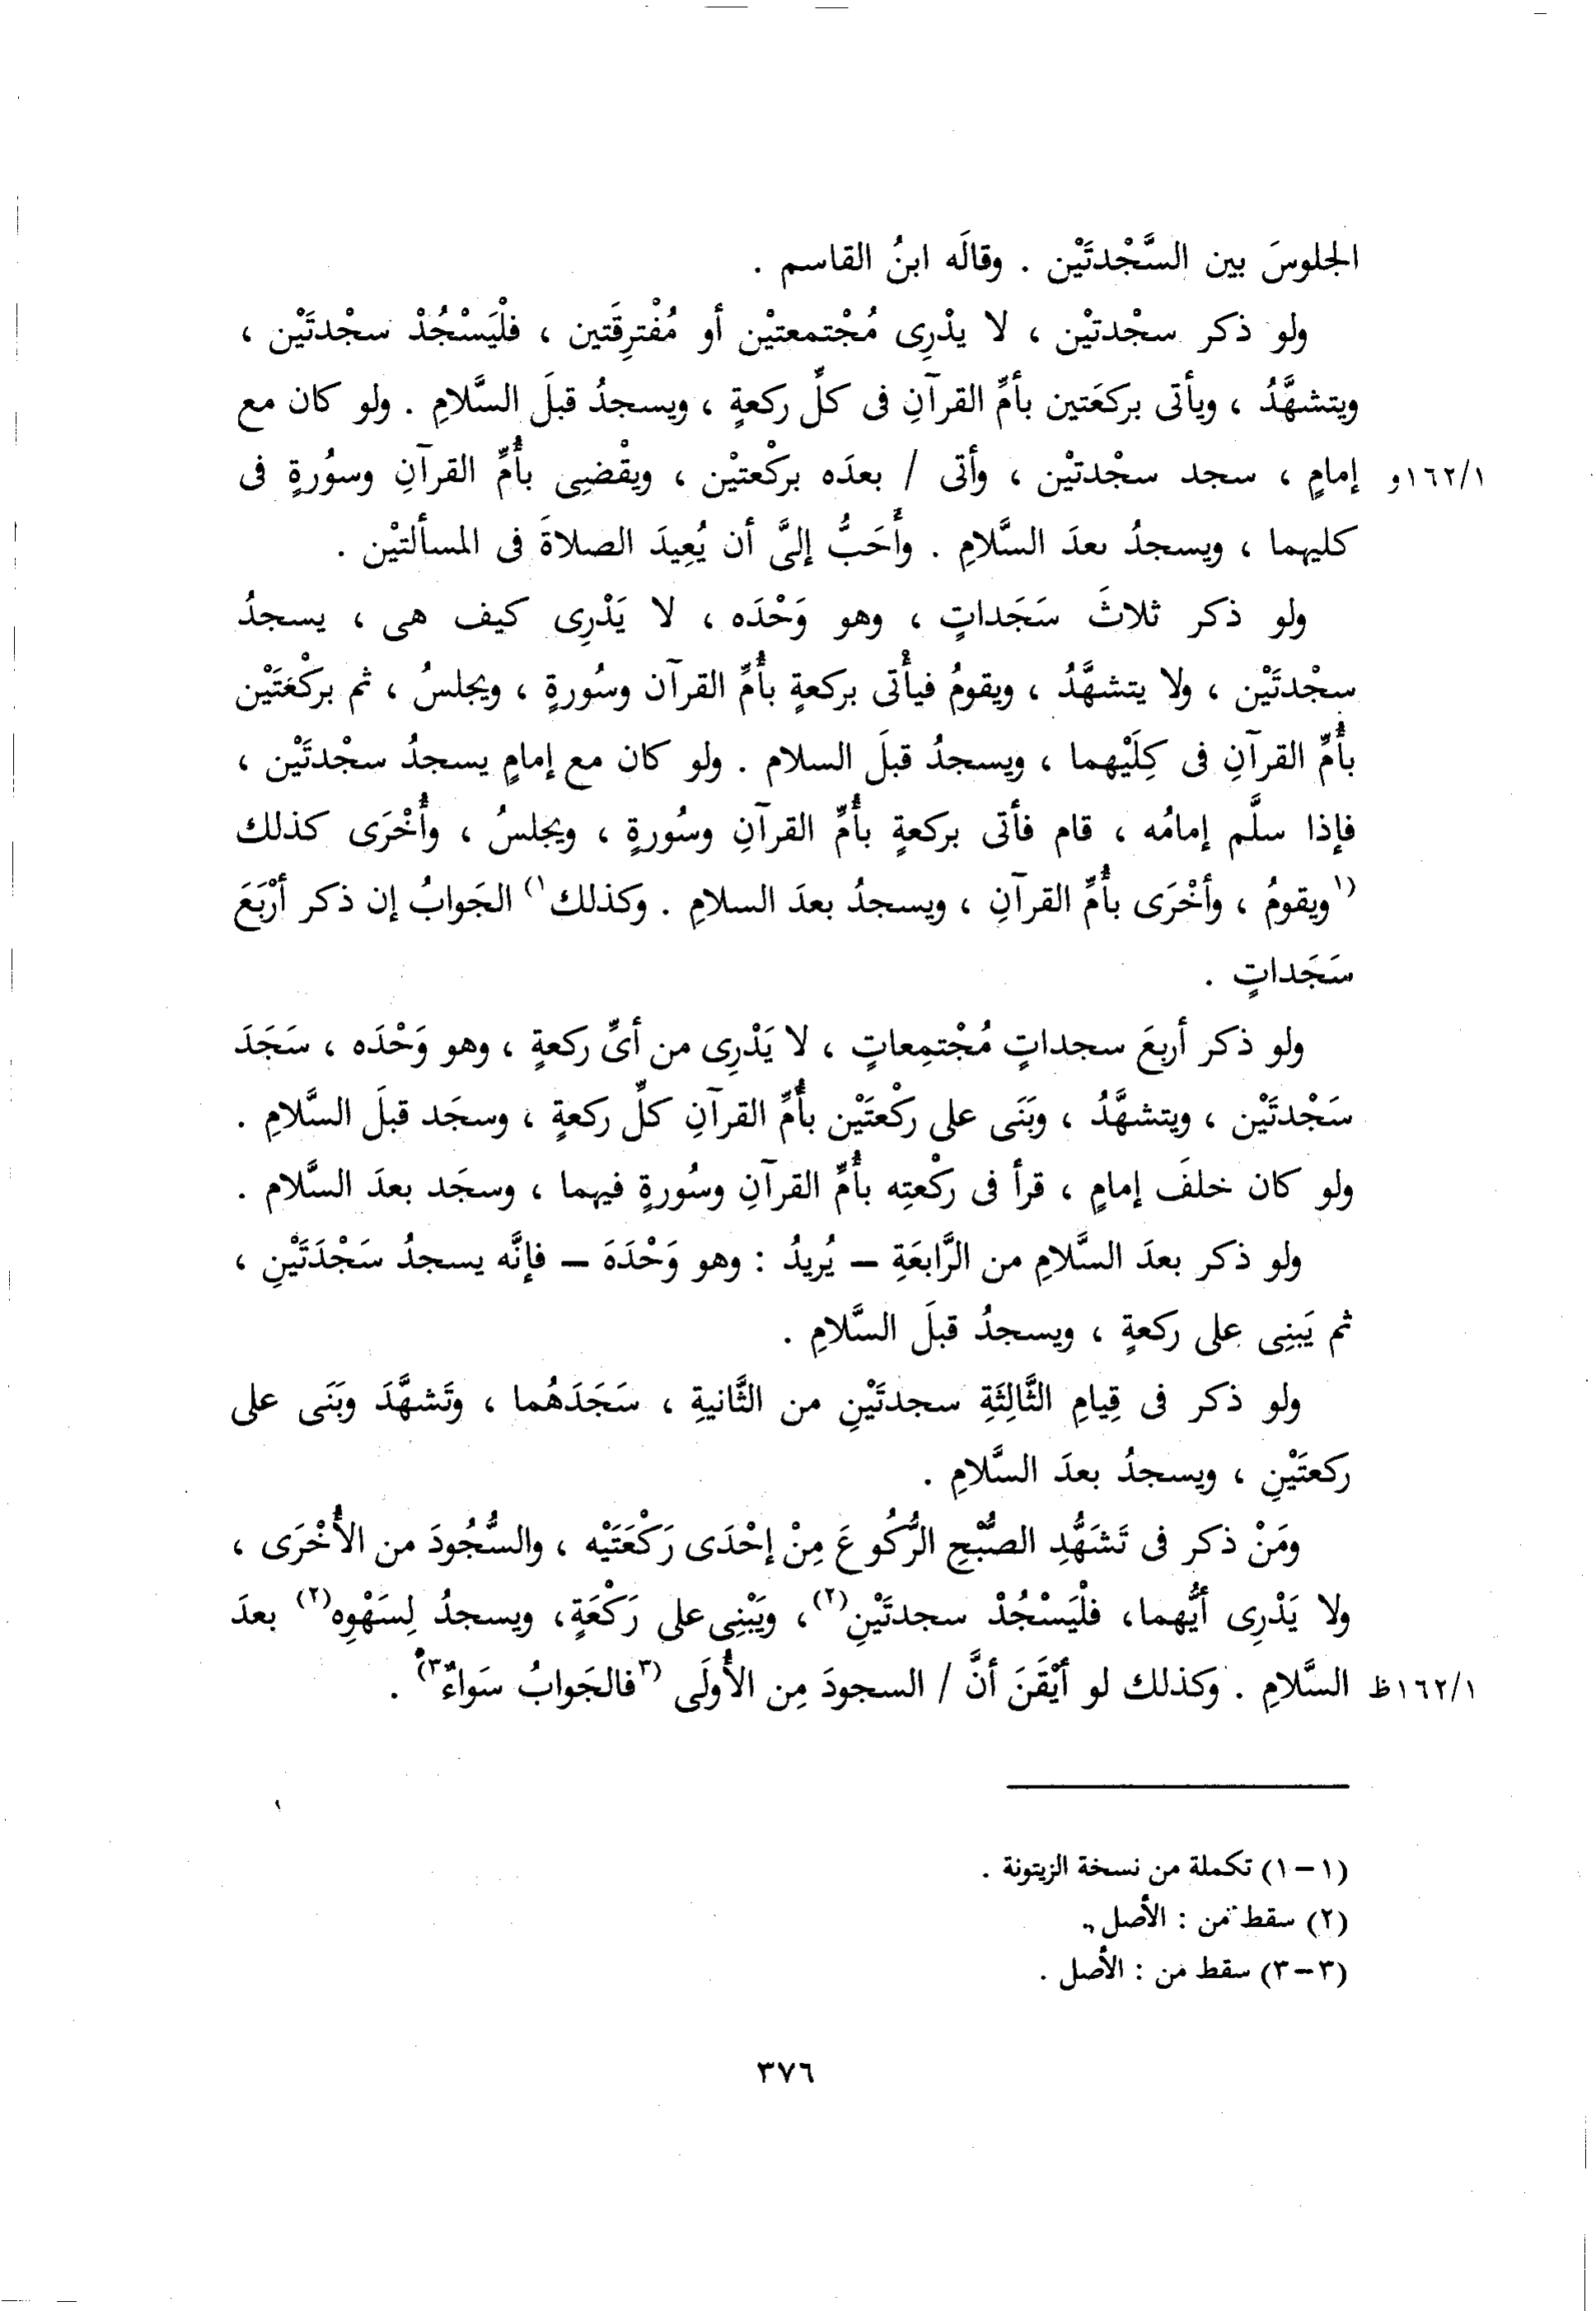 الجلوسَ بين السَّجْدتَيْن . وقالَه ابنُ القاسم .
ولو ذكر سجْدتيْن ، لا يدْرِى مُجْتمعتيْن أو مُفْترِقَتين ، فلْيَسْجُدْ سجْدتَيْن ،
ويتشهَّدُ ، ويأتى بركعَتين بأمِّ القرآنِ فى كلِّ ركعةٍ ، ويسجدُ قبلَ السَّلامِ . ولو كان مع
١/١٦٢و إمامٍ ، سجد سجْدتيْن ، وأتى / بعدَه بركْعتيْن ، ويقْضِيى بأُمِّ القرآنِ وسوُرةٍ فى
كليهما ، ويسجدُ بعدَ السَّلامِ . وأَحَبُّ إلىَّ أن يُعِيدَ الصلاةَ فى المسألتيْن .
ولو ذكر ثلاثَ سَجَداتٍ ، وهو وَحْدَه ، لا يَدْرِى كيف هى ، يسجدُ
سجْدتَيْن ، ولا يتشهَّدُ ، ويقومُ فيأْتى بركعةٍ بأُمِّ القرآن وسُورةٍ ، ويجلسُ ، ثم بركْعَتَيْن
بأُمِّ القرآنِ فى كِلَيْهما ، ويسجدُ قبلَ السلام . ولو كان مع إمامٍ يسجدُ سجْدتَيْن ،
فإذا سلَّم إمامُه ، قام فأتى بركعةٍ بأُمِّ القرآنِ وسُورةٍ ، ويجلسُ ، وأُخْرَى كذلك
(١ويقومُ ، وأخْرَى بأُمِّ القرآنِ ، ويسجدُ بعدَ السلامِ . وكذلك١) الجَوابُ إن ذكر أرْبَعَ
سَجَداتٍ .
ولو ذكر أربعَ سجداتٍ مُجْتمِعاتٍ ، لا يَدْرِى من أىِّ ركعةٍ ، وهو وَحْدَه ، سَجَدَ
سَجْدتَيْن ، ويتشهَّدُ ، وبَنَى على ركْعتَيْن بأُمِّ القرآنِ كلِّ ركعةٍ ، وسجَد قبلَ السَّلامِ .
ولو كان خلفَ إمامٍ ، قرأ فى ركْعتِه بأُمِّ القرآنِ وسُورةٍ فيهما ، وسجَد بعدَ السَّلام .
ولو ذكر بعدَ السَّلامِ من الرَّابعَةِ – يُريدُ : وهو وَحْدَهَ – فإنَّه يسجدُ سَجْدَتَيْنِ ،
ثم يَبنِى على ركعةٍ ، ويسجدُ قبلَ السَّلامِ .
ولو ذكر فى قِيامِ الثَّالِثَةِ سجدتَيْنِ من الثَّانيةِ ، سَجَدَهُما ، وتَشهَّدَ وبَنَى على
ركعتَيْنِ ، ويسجدُ بعدَ السَّلامِ .
ومَنْ ذكر فى تَشَهُّدِ الصُّبْحِ الرُّكُوعَ مِنْ إحْدَى رَكْعَتَيْه ، والسُّجُودَ من الأُخْرَى ،
ولا يَدْرِى أيُّهما، فلْيَسْجُدْ سجدتَيْنِ(٢)، ويَبْنِى على رَكْعَةٍ، ويسجدُ لِسَهْوِه(٢) بعدَ
١/١٦٢ظ السَّلامِ . وكذلك لو أيْقَنَ أنَّ / السجودَ مِن الأُولَى (٣فالجَوابُ سَواءٌ٣) .
(١ – ١) تكملة من نسخة الزيتونة .
(٢) سقط من : الأصل .
(٣ – ٣) سقط من : الأصل .
٣٧٦